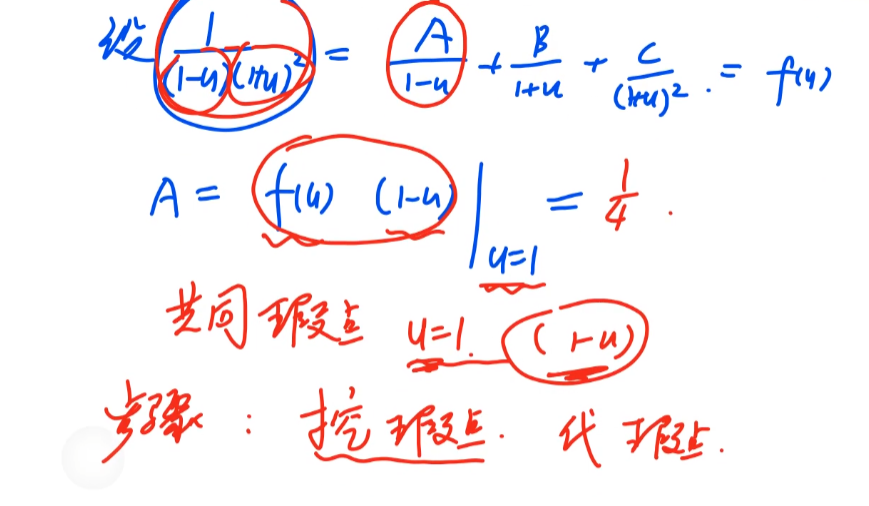 设 1/((1-u)(1+u)²) = A/(1-u) + B/(1+u) + C/((1+u)²) . = f(u)
A = f(u) (1-u) |_{u=1} = 1/4 .
共同瑕点 u=1. (1-u)
步骤 : 挖瑕点. 代瑕点.